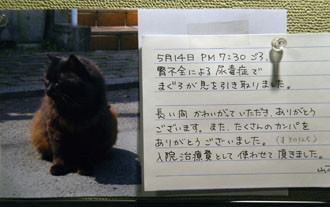 5月14日 PM 7:30 ごろ、
腎不全による尿毒症で
まぐろが息を引き取りました。
長い間 かわいがっていただき、ありがとう
ございます。また、たくさんのカンパを
ありがとうございました。
入院治療費として使わせて頂きました。